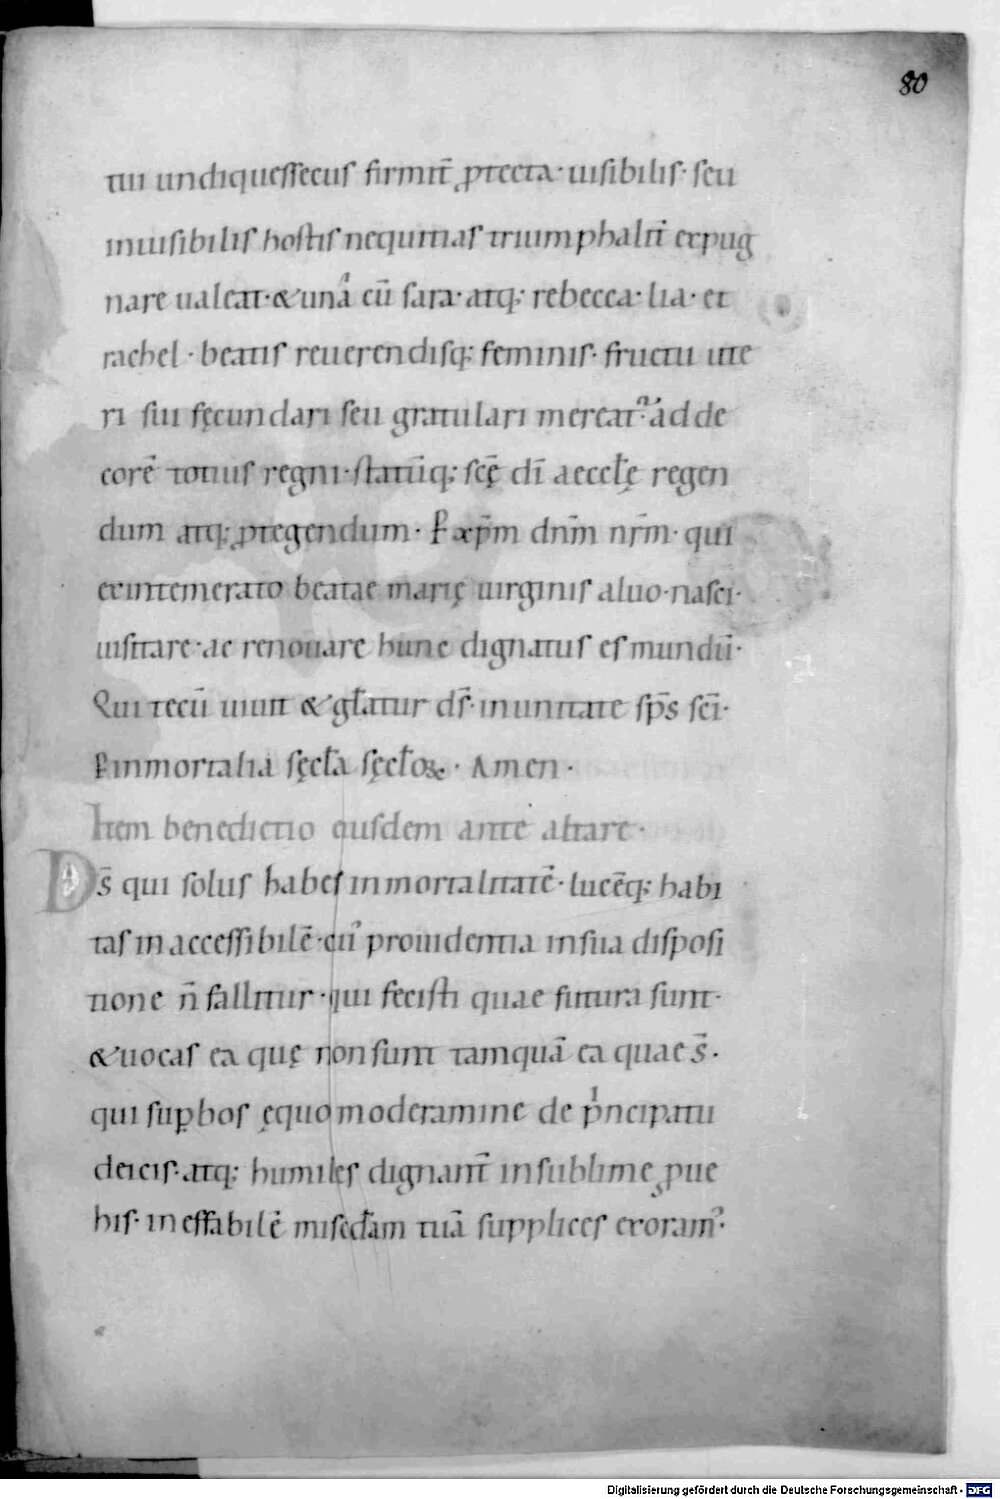 80
tui undiquessecus firmit̄ ꝓtecta · uisibilis · seu
inuisibilis hostis nequitias triumphalit̄ expug
nare ualeat · & una cū sara · atq; rebecca · lia · et
rachel · beatis reuerendisq; feminis · fructu ute
ri sui fęcundari seu gratulari mereat᷑ · ad de
corē totius regni · statūq; scę̄ dī aeccl̄ę regen
dum atq; ꝓtegendum · ꝑ xp̄m dn̄m nr̄m · qui
ex intemerato beatae marię uirginis aluo · nasci ·
uisitare · ac renouare hunc dignatus es mundū ·
Qui tecū uiuit & gl̄atur ds̄ · in unitate sp̄s sc̄i ·
ꝑ inmortalia sęcl̄a sęcl̄oꝝ · Amen ·
Item benedictio eiusdem ante altare ·
Ds̄ qui solus habes inmortalitatē · lucēq; habi
tas inaccessibilē · cui᾽ prouidentia in sua disposi
tione n̄ fallitur · qui fecisti quae futura sunt ·
& uocas ea quę non sunt tamquā ea quae s̄ ·
qui suꝑbos ęquo moderamine de pͥncipatu
deicis · atq; humiles dignant̄ in sublime ꝓue
his · ineffabilē misc̄d̄am tuā supplices exoram᾽ ·
Digitalisierung gefördert durch die Deutsche Forschungsgemeinschaft - DFG